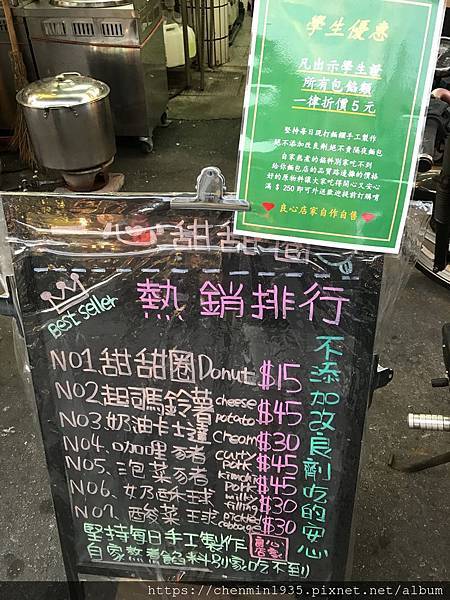 學生優惠
凡出示學生證
所有包餡類
一律折價5元
堅持每日現打麵糰手工製作
絕不添加改良劑絕不賣隔夜麵包
自家熬煮的餡料別家吃不到
給你麵包店的品質路邊攤的價格
好的原物料讓大家吃得開心又安心
滿$250即可外送歡迎提前訂購唷
良心店家自作自售
一心甜甜圈
Best seller
熱銷排行
NO1.甜甜圈Donut $15
NO2.起司馬鈴薯cheese potato $45
NO3.奶油卡士達Cream $30
NO4.咖哩豬curry pork $45
NO5.泡菜豬kimchi pork $45
NO6.奶酥球milky filling $30
NO7.酸菜球pickled cabbage $30
不添加改良劑吃的安心
堅持每日手工製作
良心店家
自家熬煮餡料別家吃不到
https://chenmin1935.pixnet.net/album